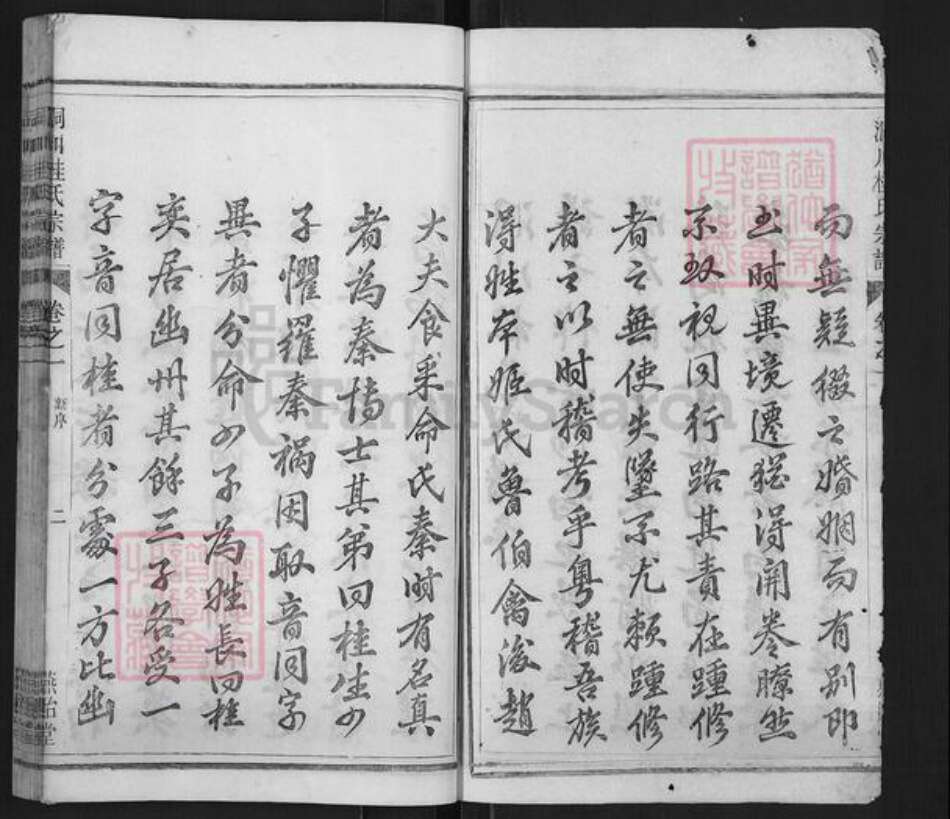 而無疑綴之婚姻而有別即
出時異境遷猶得開卷瞭然
不致視同行路其責在踵修
者之無使失墜不尤賴踵修
者之以時稽考乎粵稽吾族
得姓本姬氏魯伯禽後趙
大夫食采命氏秦時有名真
者為秦博士其第曰桂生四
子懼罹秦禍因取音同字
異者分命四子為姓長曰桂
奕居幽州其餘三子各受一
字音同桂者分處一方比幽
桂氏宗譜
卷之一
譜序
二
燕貽堂
氏宗譜
猶他家譜學會收藏
猶他家譜學會收藏
FamilySearch